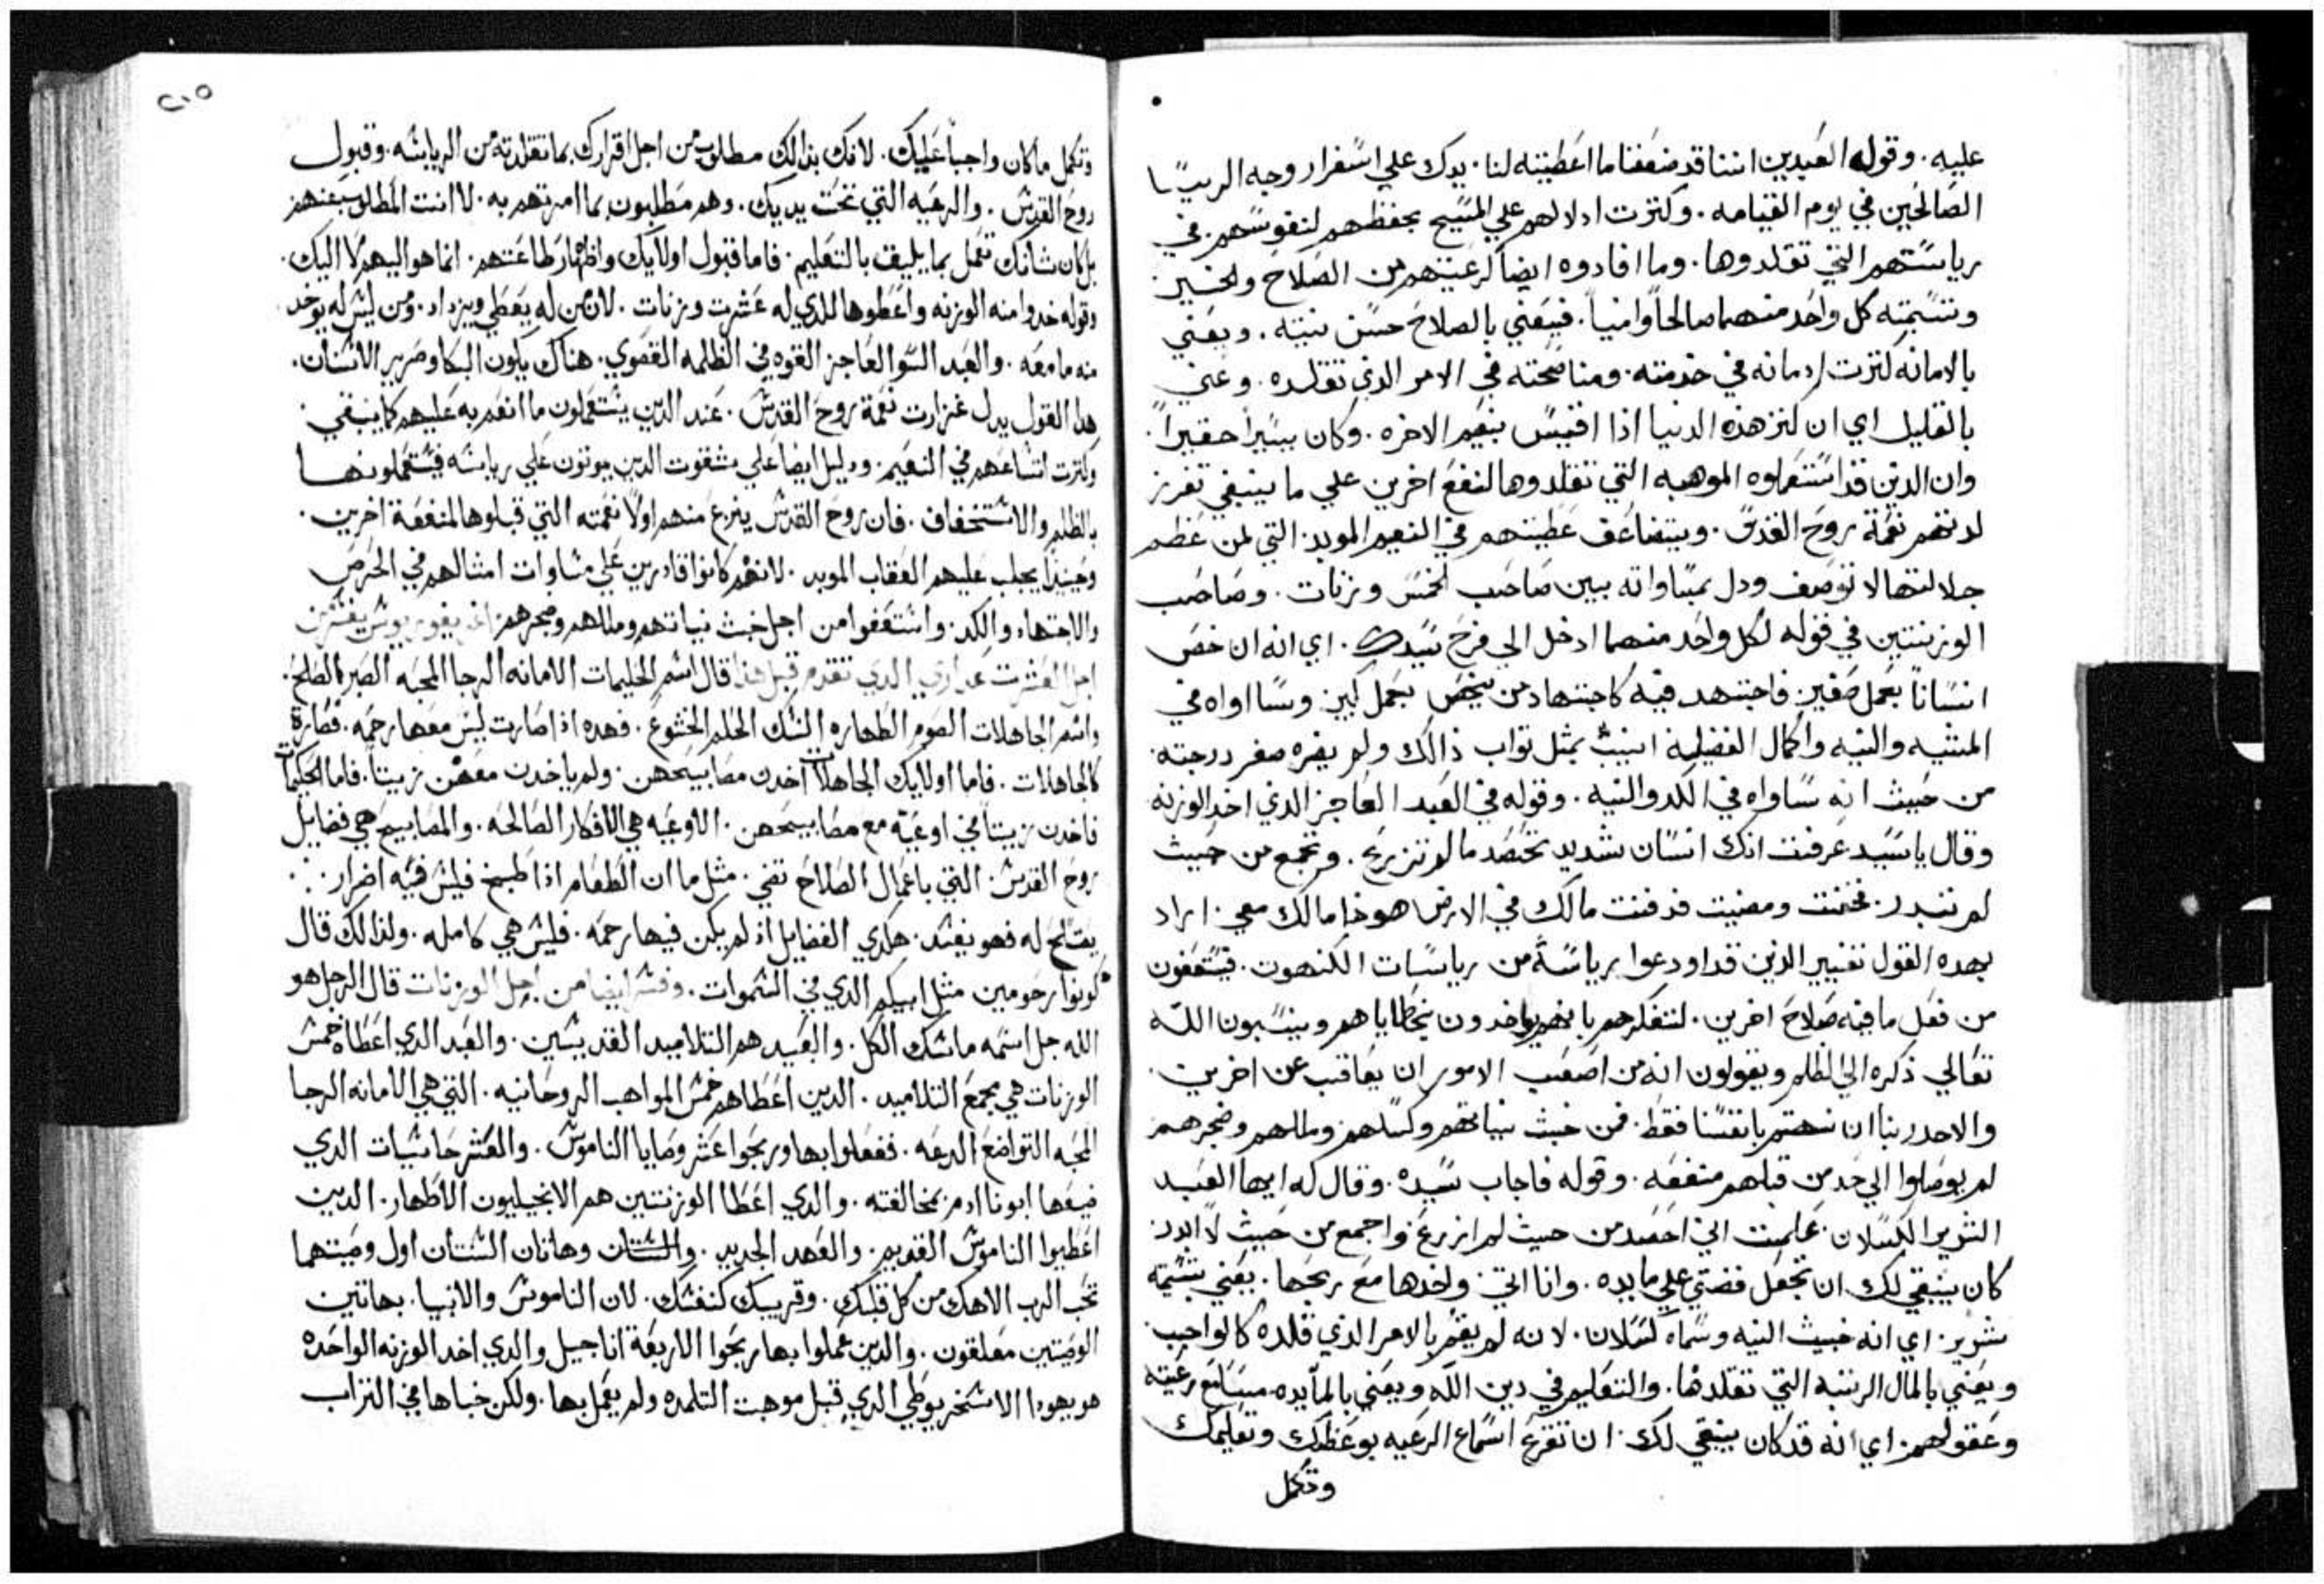 عليه. وقوله العبدين اننا قد ضعفنا ما اعطيته لنا. يدل علي اسفرار وجه الريسا
الصالحين في يوم القيامه. وكترت ادلالهم علي المسيح بحفظهم لنفوسهم. في
رياستهم التي تقلدوها. وما افادوه ايضا لرعيتهم من الصلاح والخير.
وتسميته كل واحد منهما صالحاً وامنياً. فيعني بالصلاح حسن نيته. ويعني
بالامانه لترت ادمانه في خدمته. ومناصحته في الامر الدي تقلده. وعني
بالقليل اي ان لنز هذه الدنيا اذا اقيس بنعيم الاخره. وكان يسيراً حقيراً.
وان الدين قد استعملوه الموهبه التي تقلدوها لنفع اخرين علي ما ينبغي تغزر
لدنهم نعمة روح القدس. ويتضاعف عطيتهم في النعيم الموبد. التي لمن عظم
جلالتها لا توصف ودل بمساواته بين صاحب الخمس وزنات. وصاحب
الوزنتين في قوله لكل واحد منهما ادخل الي فرح سيدك. اي انه ان خص
انساناً بعمل صغير. فاجتهد فيه كاجتهاد من يخص بعمل كبير وسااواه في
المشيه والنيه واكمال الفضيله اتيب بمثل تواب ذالك ولم يضره صغر درجته.
من حيث انه ساواه في الكد والنيه. وقوله في العبد العاجز الدي اخد الوزنه
وقال ياسيد عرفت انك انسان شديد تحصد ما لم تزرع. وتجمع من حيث
لم تبدر. فخفت ومضيت فدفنت مالك في الارض هوذا مالك معي. اراد
بهده القول تغيير الدين قد اودعوا رياسةً من رياسات الكنهوت. فيستعفون
من فعل ما فيه صلاح اخرين. لتفكرهم بانهم يواخدون بخطاياهم وينسبون الله
تعالي ذكره الي الظلم ويقولون انه من اصعب الامور ان يعاقب عن اخرين.
والاجدر بنا ان نهتم بانفسنا فقط. فمن خبث نياتهم وكسلهم ومللهم وضجرهم
لم يوصلوا الي حد من قبلهم منفعه. وقوله فاجاب سيده. وقال له ايها العبد
الشرير الكسلان. علمت اني احصد من حيث لم ازرع واجمع من حيث لا ابدر.
كان ينبغي لك ان تجعل فضتي علي مايده. وانا اتي. واخدها مع ربحها. يعني بتسميته
شرير. اي انه خبيث النيه وسماه كسلان. لانه لم يقم بالامر الذي قلده كالواجب.
ويعني بالمال الرتبه التي تقلدها. والتعليم في دين الله ويعني بالمايده مسامع رعيته
وعقولهم. اي انه قد كان ينبغي لك. ان تقرع اسماع الرعيه بوعظك وتعليمك
وتكمل
٢٠٥
وتكمل ما كان واجباً عليك. لانك بذالك مطلوب من اجل اقرارك بما تقلدته من الرياسه. وقبول
روح القدس. والرعيه التي تحت يديك. وهم مطلبون بما امرتهم به. لا انت المطلوب عنهم
بل كان شانك تعمل بما يليق بالتعليم. فاما قبول اولايك واظهار طاعتهم. انما هو اليهم لا اليك.
وقوله خدوا منه الوزنه واعطوها للدي له عشرت وزنات. لان من له يعطي ويزداد. ومن ليس له يوخد
منه ما معه. والعبد السو العاجز القوه في الظلمه القصوي. هناك يكون البكا وصرير الاسنان.
هدا القول يدل غزارت نعمة روح القدس. عند الدين يستعملون ما انعم به عليهم كما ينبغي.
وكترت اتساعهم في النعيم. ودليل ايضا علي شقوت الدين يوتون علي رياسه فيستعملونها
بالظلم والاستخفاف. فان روح القدس ينزع منهم اولاً نعمته التي قبلوها لمنفعة اخرين.
وحينيذ يجلب عليهم العقاب الموبد. لانهم كانوا قادرين علي مساوات امتالهم في الحرص
والاجتهاد والكد. واستعفوا من اجل خبث نياتهم ومللهم وضجرهم.
اجل العشرت عداري الدي تقدم قبل هدا قال اسم الحكيمات الامانه الرجا المحبه الصبر الصلح.
واسم الجاهلات الصوم الطهاره النسك الحلم الخشوع. فهده اذا صارت ليس معها رحمه. فصارة
كالجاهلات. فاما اولايك الجاهلات اخدن مصابيحهن. ولم ياخدن معهن زيتاً. فاما الحكيمات
فاخدن زيتاً في اوعيه مع مصابيحهن. الاوعيه هي الافكار الصالحه. والمصابيح هي فضايل
روح القدس. التي باعمال الصلاح تضي. مثل ما ان الطعام اذا طبخ فليس فيه اضرار.
يصلح له فهو يفسد. هكدي الفضايل اذ لم يكن فيها رحمه. فليس هي كامله. ولذالك قال
كونوا رحومين مثل ابيكم الدي في السموات. وفسر ايضا من اجل الوزنات قال الرجل هو
الله جل اسمه ماسك الكل. والعبيد هم التلاميد القديسين. والعبد الدي اعطاه خمس
الوزنات هي مجمع التلاميد. الدين اعطاهم خمس المواهب الروحانيه. التي هي الامانه الرجا
المحبه التواضع الدعه. ففعلوا بها وربحوا عشر وصايا الناموس. والعشر حاشيات الدي
ضيعها ابونا ادم بمخالفته. والدي اعطا الوزنتين هم الانجيليون الاطهار. الدين
اعطيوا الناموس القديم. والعهد الجديد. والستان وهاتان السنتان اول وصيتهما
تحب الرب الاهك من كل قلبك. وقريبك كنفسك. لان الناموس والانبيا. بهاتين
الوصيتين معلقون. والدين عملوا بها ربحوا الاربعة اناجيل والدي اخد الوزنه الواحده
هو يهودا الاسخريوطي الدي قبل موهبت التلمده ولم يعمل بها. ولكن خباها في التراب